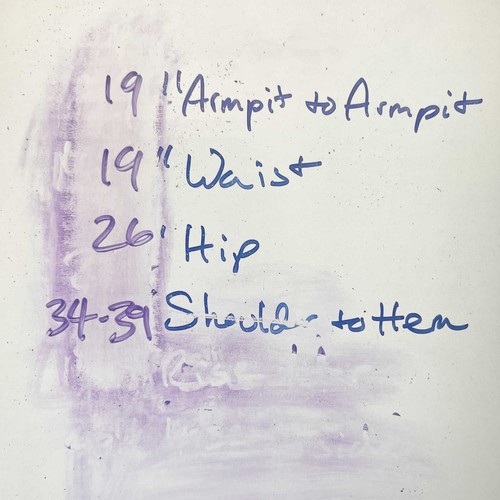 19" Armpit to Armpit
19" Waist
26' Hip
34-39 Shoulder to Hem